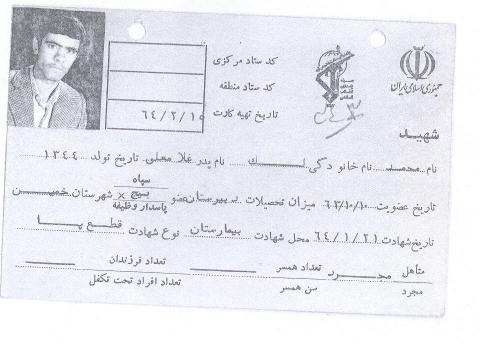 جمهوری اسلامی ایران
کد ستاد مرکزی
کد ستاد منطقه
تاریخ تهیه کارت ۶۴/۲/۱۵
شهید
نام محمد نام خانوادگی لک نام پدر غلامعلی تاریخ تولد ۱۳۴۴
تاریخ عضویت ۶۳/۱۰/۱۰ میزان تحصیلات دبیرستان عضو سپاه بسیج × پاسدار وظیفه شهرستان خمین
تاریخ شهادت ۶۴/۱/۲۱ محل شهادت بیمارستان نوع شهادت قطع پا
متاهل مجرد مجرد تعداد همسر تعداد فرزندان
سن همسر تعداد افراد تحت تکفل